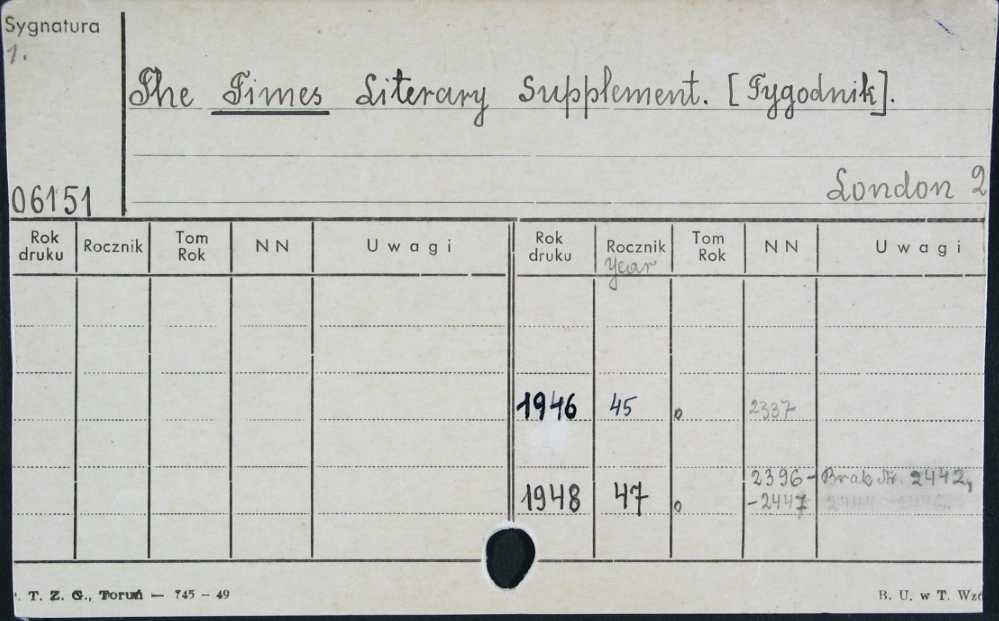 Sygnatura
1.
The Times Literary Supplement. [Tygodnik].
London 2
06151
Rok druku Rocznik Tom Rok N N U w a g i Rok druku Rocznik Tom Rok N N U w a g i
Year
1946 45 o 2337
2396- Brak Nr. 2442,
1948 47 o -2447 2444
T. Z. G., Toruń — 745 – 49
B. U. w T. Wzó